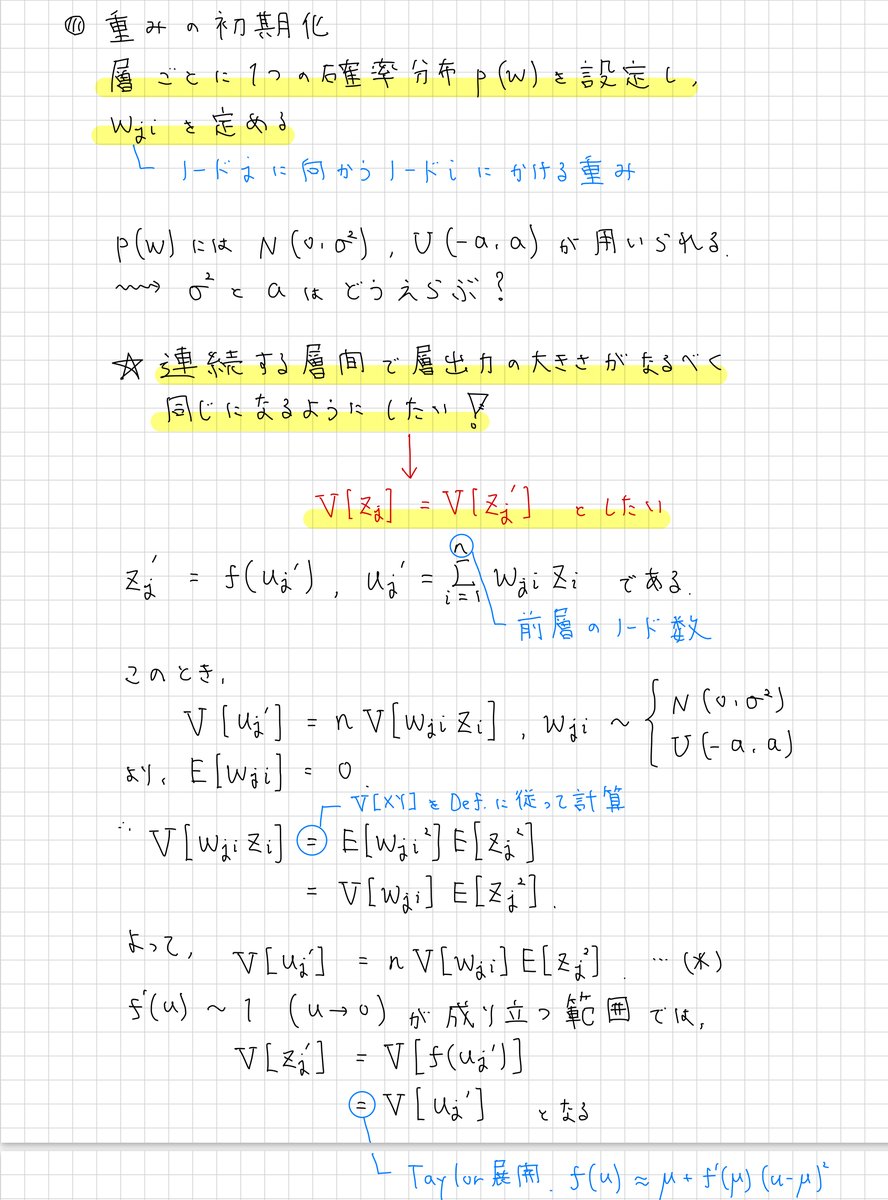 ◎ 重みの初期化
層ごとに1つの確率分布 p(w) を設定し,
Wji を定める
ノードjに向かうノードiにかける重み
p(w) には N(0, σ²), U(-a, a) が用いられる.
⟿ σ² と a はどうえらぶ?
☆ 連続する層間で層出力の大きさがなるべく
同じになるようにしたい!
V[Zj] = V[Zj'] としたい
Zj' = f(uj'), uj' = Σ_{i=1}^{n} Wji Zi である.
前層のノード数
このとき,
V[uj'] = n V[Wji Zi], Wji ~ { N(0, σ²)
U(-a, a)
より, E[Wji] = 0.
V[XY] を Def. に従って計算
∴ V[Wji Zi] = E[Wji²] E[Zj²]
= V[Wji] E[Zj²].
よって,
V[uj'] = n V[Wji] E[Zj²]. … (*)
f'(u) ~ 1 (u→0) が成り立つ範囲では,
V[Zj'] = V[f(uj')]
= V[uj'] となる
Taylor展開. f(u) ≈ μ + f'(μ)(u-μ)²